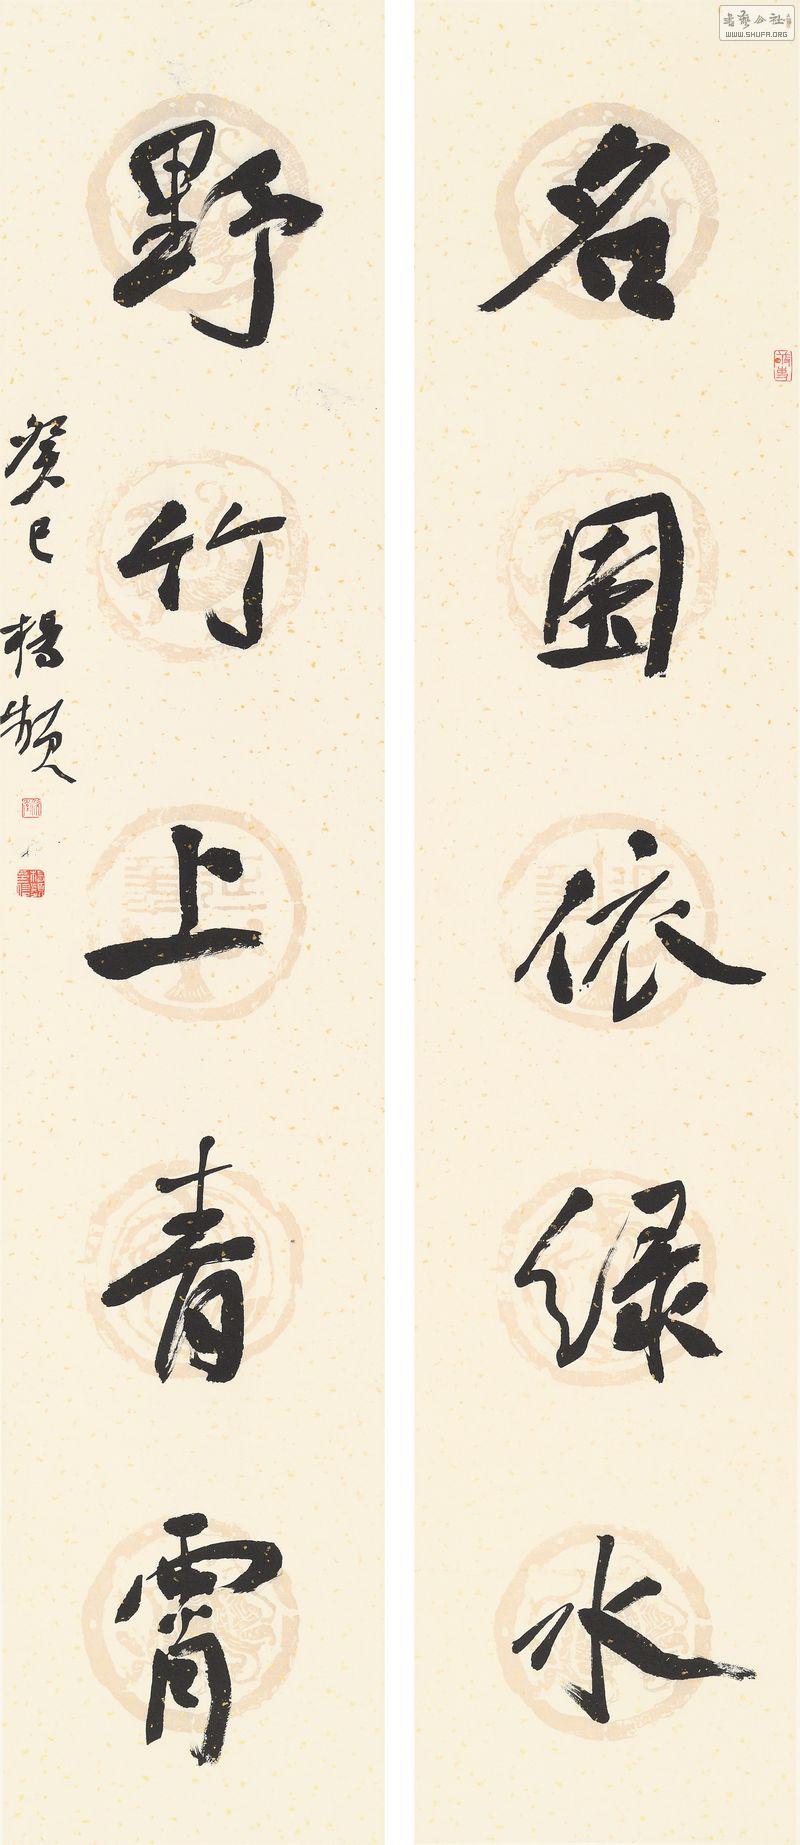 名園依绿水
野竹上青霄
癸巳 楊頻
书艺公社
WWW.SHUFA.ORG